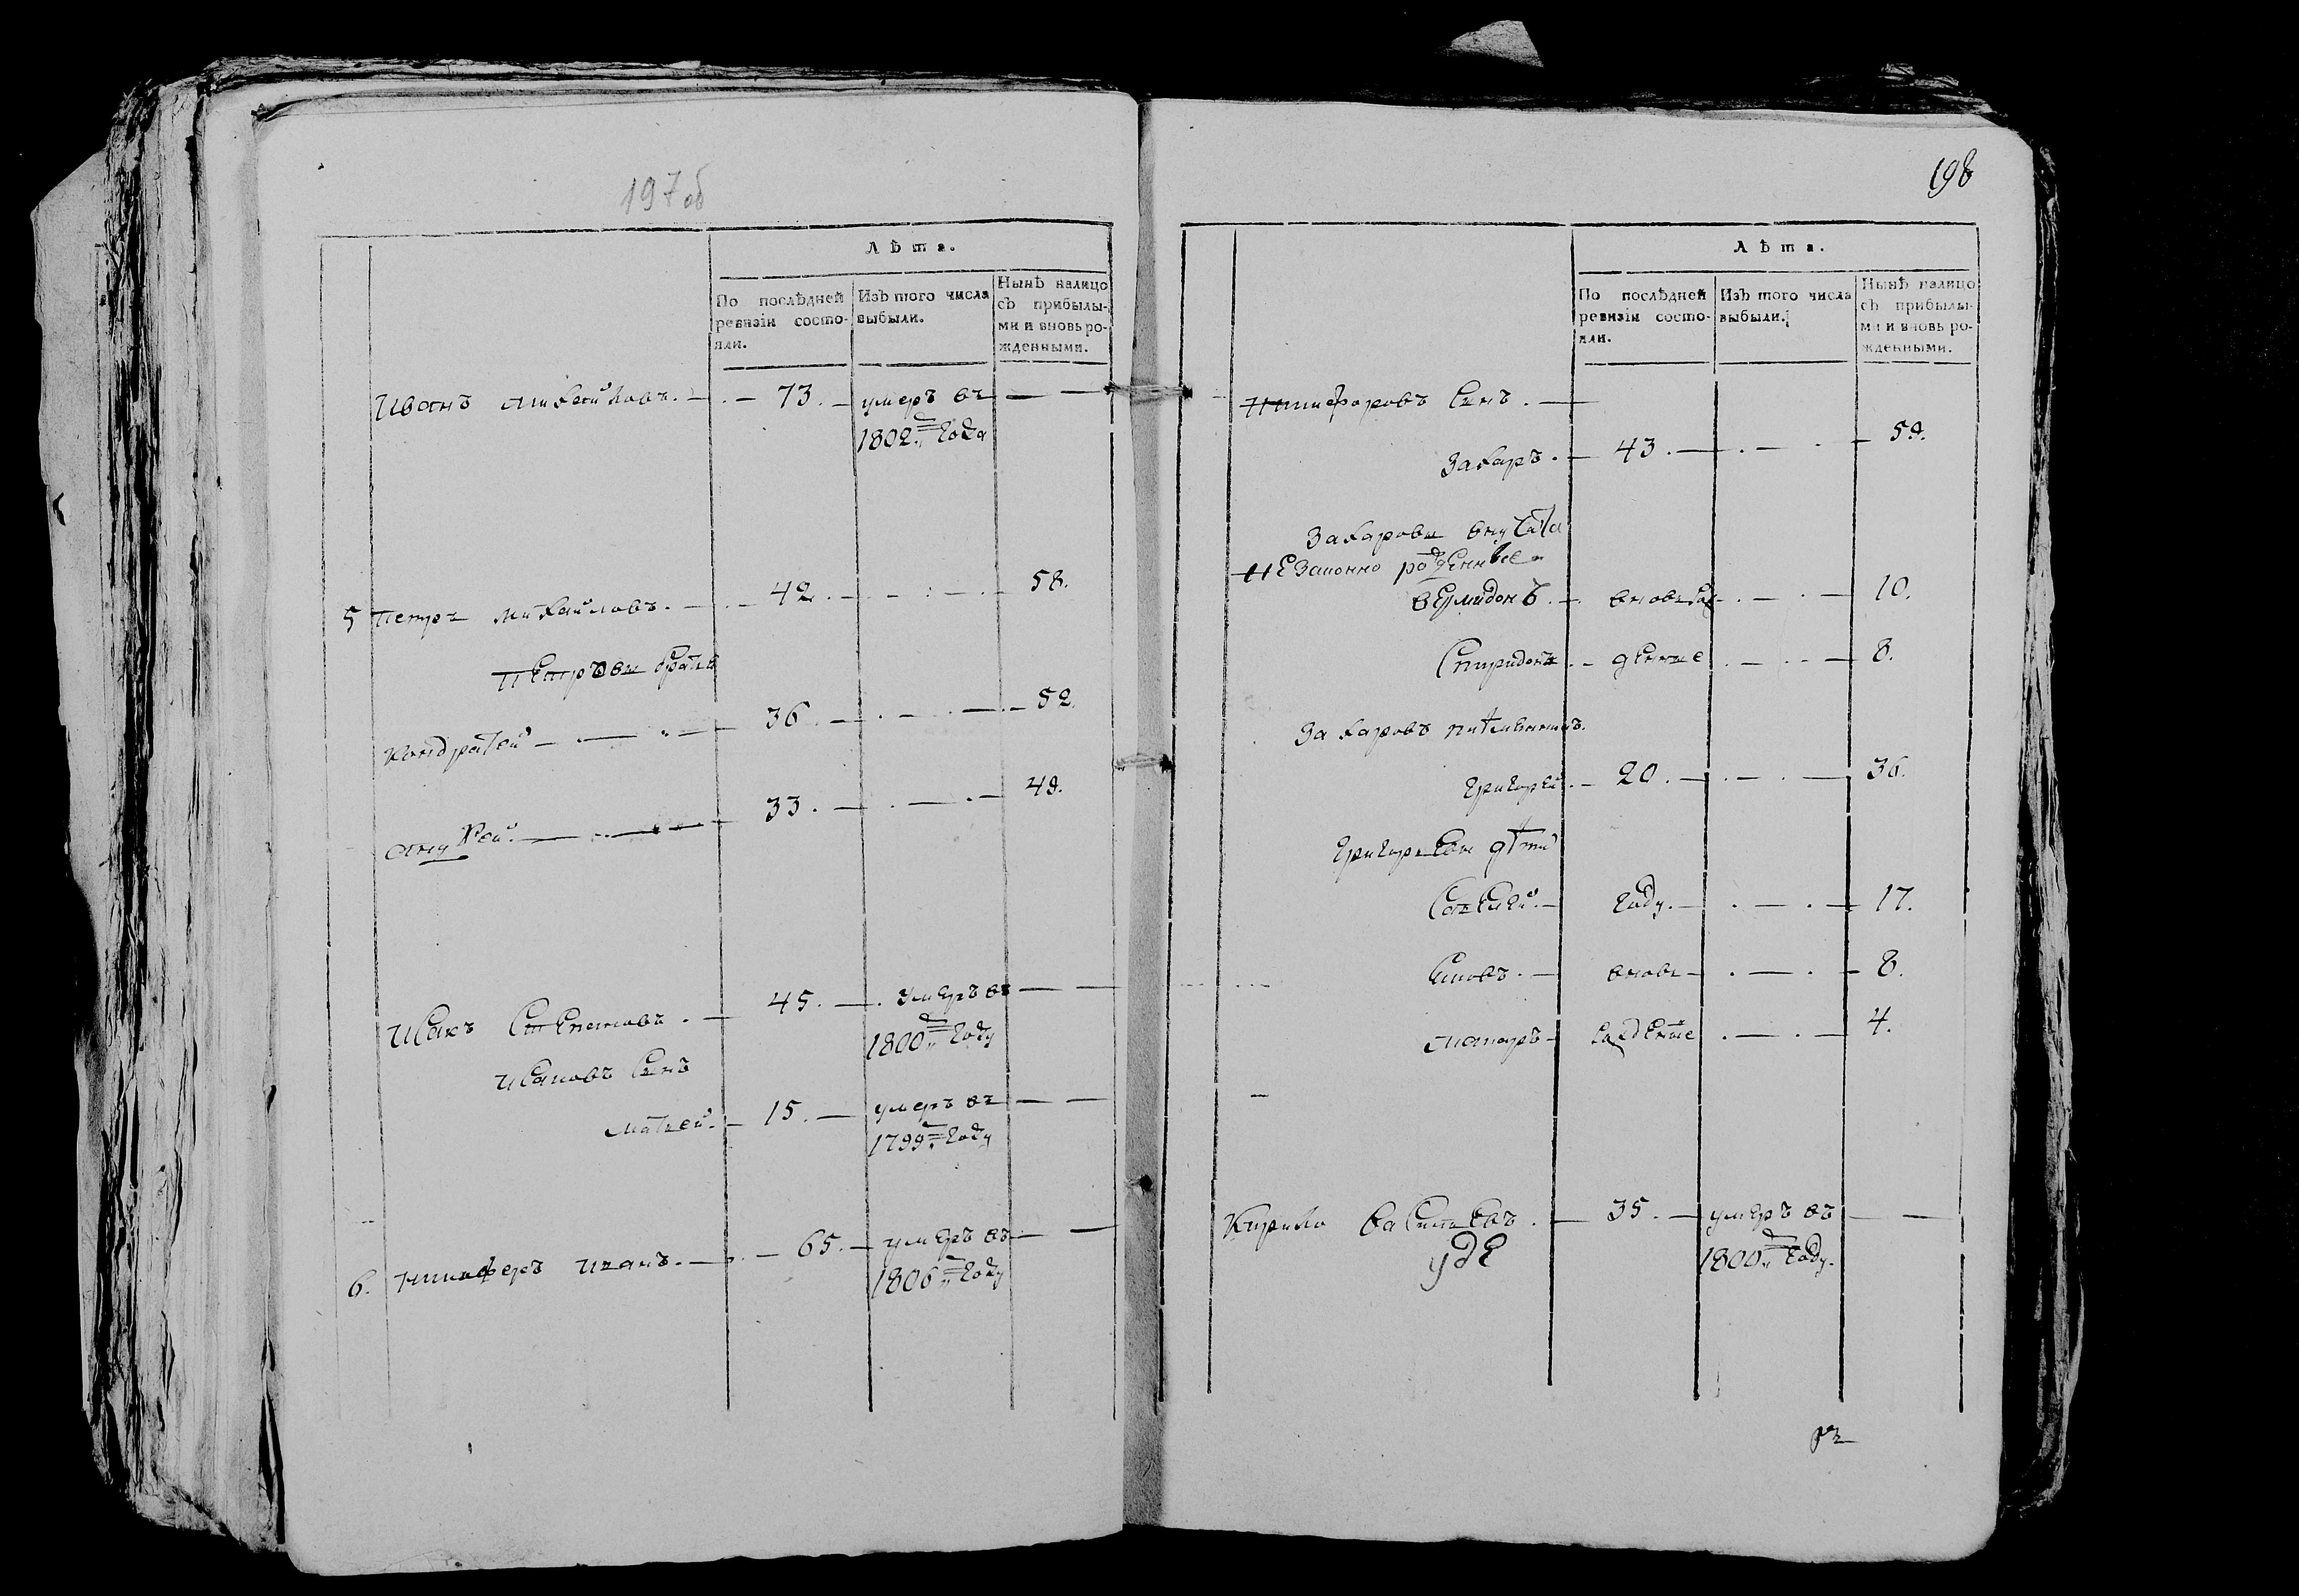 197 об
Лѣта.
По послѣдней ревизіи состояли.
Изъ того числа выбыли.
Нынѣ налицо съ прибылыми и вновь рожденными.
Иванъ Михайловъ. 73. умеръ въ
1802.го Года
5 Петръ Михайловъ. 42. 58.
Петровы братья
Кондратей 36. 52.
33. 49.
Исакъ Степановъ. 45. умеръ въ
1800го Году
Исаковъ Сынъ
Матвей. 15. умеръ въ
1799го Году
6. 65. умеръ въ
1806го Году
198
Лѣта.
По послѣдней ревизіи состояли.
Изъ того числа выбыли.
Нынѣ налицо съ прибылыми и вновь рожденными.
Никифоровъ Сынъ.
Захаръ. 43. 59.
Захаровы внучата
Незаконно рожденные
вновь ро 10.
Спиридонъ жденные 8.
Захаровъ племянникъ.
Григорей. 20. 36.
Григорьевы дѣти
году. 17.
вновь 8.
рожденные 4.
Кирило Васильевъ. 35. умеръ въ
1800.го Году.